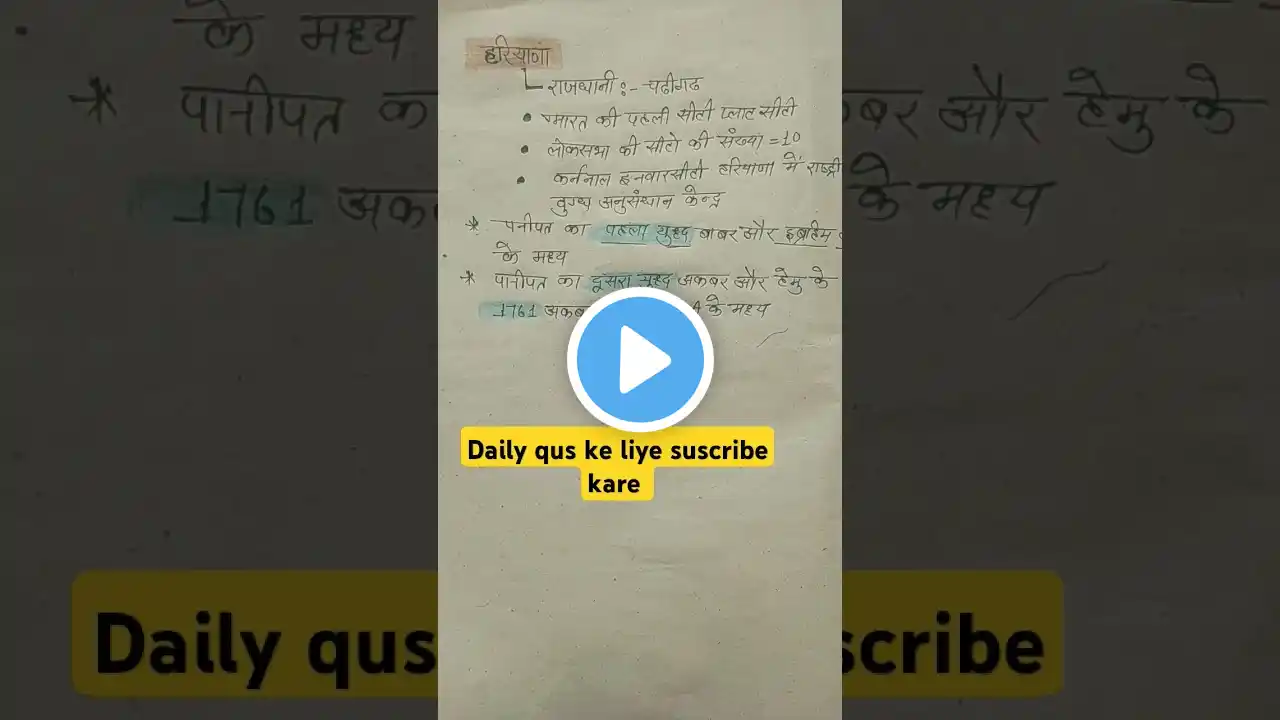 हरियाणा
राजधानी :- चंडीगढ
• भारत की पहली सीटी प्लाट सीटी
• लोकसभा की सीटो की संख्या =10
• कर्ननाल इनवारसीटी हरियाणा में राष्ट्री
दुग्ध अनुसंधान केन्द्र
* पनीपत का पहला युध्द बाबर और इब्राहिम
के मध्य
* पानीपत का दूसरा युध्द अकबर और हेमु के
1761 अकब के मध्य
Daily qus ke liye suscribe
kare
के मध्य
* पानीपत क
1761 अक
बर और हेमु के
के मध्य
Daily qus
scribe